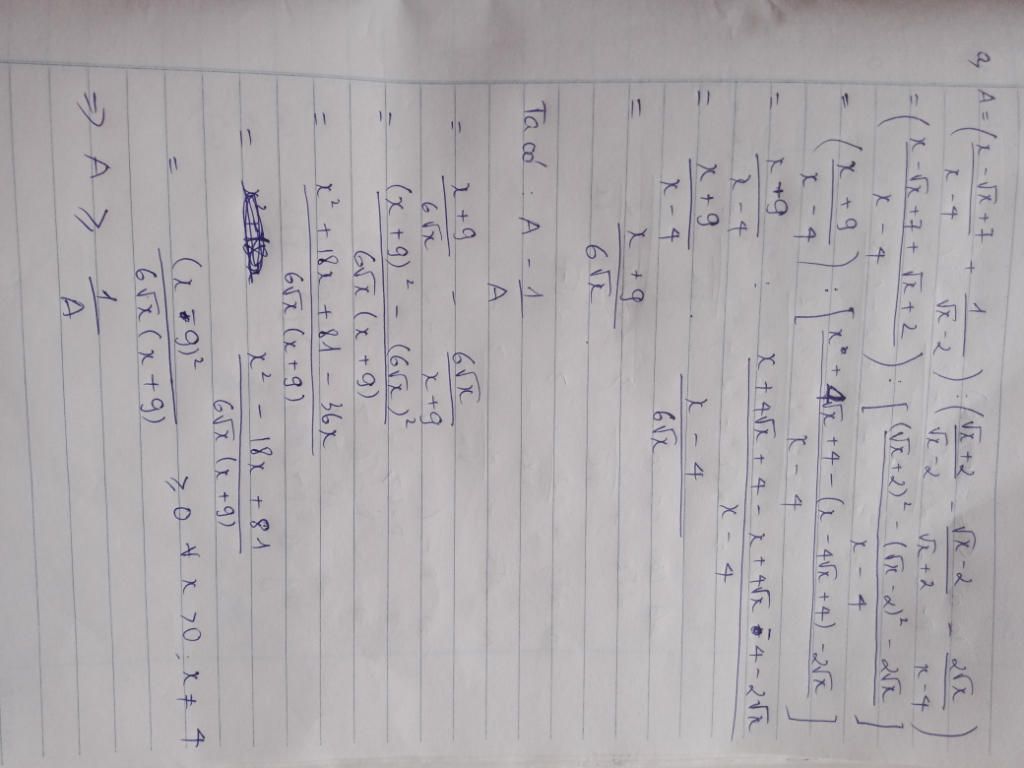 a, A = ( (x - √x + 7)/(x - 4) + 1/(√x - 2) ) : ( (√x + 2)/(√x - 2) - (√x - 2)/(√x + 2) - 2√x/(x - 4) )
= ( (x - √x + 7 + √x + 2)/(x - 4) ) : [ ((√x + 2)² - (√x - 2)² - 2√x)/(x - 4) ]
= ( (x + 9)/(x - 4) ) : [ (x + 4√x + 4 - (x - 4√x + 4) - 2√x)/(x - 4) ]
= (x + 9)/(x - 4) : (x + 4√x + 4 - x + 4√x - 4 - 2√x)/(x - 4)
= (x + 9)/(x - 4) . (x - 4)/(6√x)
= (x + 9)/(6√x)
Ta có : A - 1/A
= (x + 9)/(6√x) - 6√x/(x + 9)
= ((x + 9)² - (6√x)²)/(6√x (x + 9))
= (x² + 18x + 81 - 36x)/(6√x (x + 9))
= (x² - 18x + 81)/(6√x (x + 9))
= (x - 9)²/(6√x (x + 9)) ≥ 0 ∀ x > 0 ; x ≠ 4
=> A ≥ 1/A